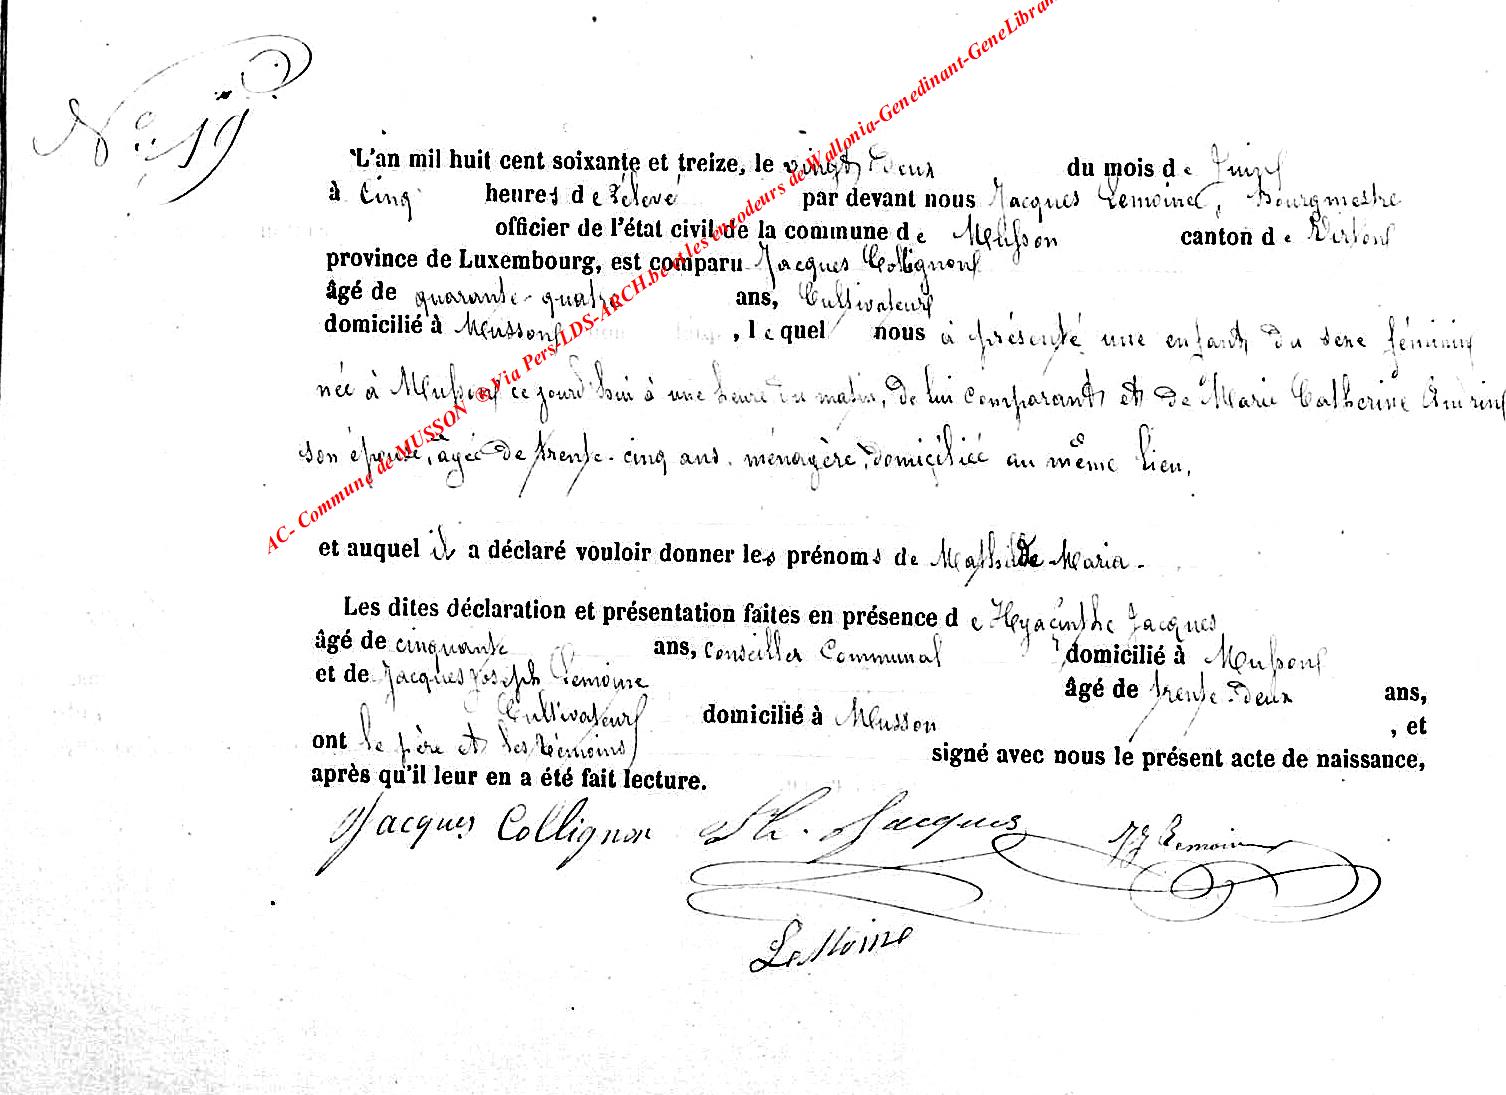 N° 19
L'an mil huit cent soixante et treize, le vingt deux du mois de Juin
à Cinq heures de rélevé par devant nous Jacques Lemoine, Bourgmestre
officier de l'état civil de la commune de Musson canton de Virton
province de Luxembourg, est comparu Jacques Collignon
âgé de quarante-quatre ans, Cultivateur
domicilié à Musson, lequel nous à présenté une enfant du sexe féminin
née à Musson ce jourd'hui à une heure du matin, de lui comparant et de Marie Catherine
son épouse, agée de trente-cinq ans, ménagère, domiciliée au même lieu,
et auquel il a déclaré vouloir donner les prénoms de Mathilde Maria-
Les dites déclaration et présentation faites en présence de Hyacinthe Jacques
âgé de cinquante ans, Conseiller Communal, domicilié à Musson
et de Jacques Joseph Lemoine âgé de trente-deux ans,
Cultivateur domicilié à Musson, et
ont le père et les témoins signé avec nous le présent acte de naissance,
après qu'il leur en a été fait lecture.
Jacques Collignon Jacques JJ Lemoine
LeMoine
AC- Commune de MUSSON ® Via Pers-LDS-ARCH.be et les encodeurs de Wallonia-Genedinant-GeneLibran